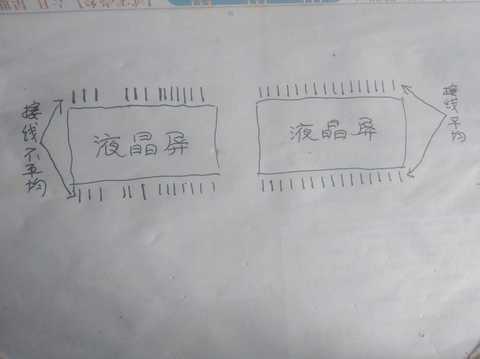 接线不平均
液晶屏
液晶屏
接线平均